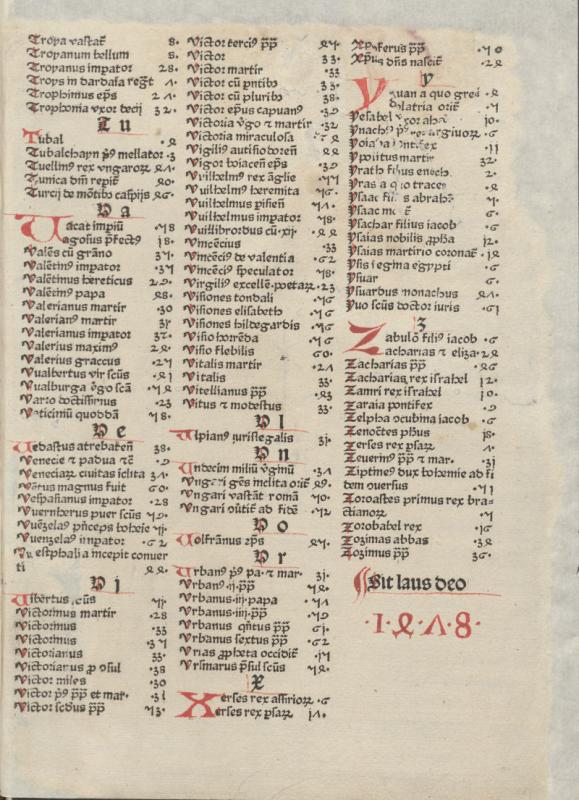 Troya vastat̄ 8·
Troyanum bellum 8·
Troyanus impator 28·
Troys in dardasa regēt 7·
Trophimus ep̄s 27·
Trophonia vxor decij 32·
Tu
Tubal ·4
Tubalchayn pꝰ mellator ·3
Tuellinꝰ rex vngaroꝝ
Tunica dn̄i repit̄ 40·
Turcij de mōtibꝰ caspijs 46·
Va
Uacat impiū ·58
Uagosius pfectꝰ 18·
Valēs cū grāno 37·
Valētinꝰ impator ·37
Valētinus hereticus 29·
Valētinꝰ papa 48·
Valerianus martir ·30
Valerianꝰ martir 31·
Valerianus impator 32·
Valerius maximꝰ 24·
Valerius graccus ·27
Vualbertus vir scūs ·41
Vualburga v̄go scā ·54
Varro doctissimus ·23
Vaticiniū quoddā 58·
Ve
Uedastus atrebatēn̄ 38·
Venecie 7 padua 7c̄ ·9
Veneciaꝝ cuitas iclita 37·
Vētus magnus fuit 60·
Vespasianus impator ·28
Vuernherus puer scūs 59·
Vuēzelaꝰ pn̄ceps bohēie 55·
Vuenzelaꝰ impator ·62
Vuestphalia incepit conuer
ti 44·
Vi
Uibertus scūs 55·
Victorinus martir ·28
Victorinus ·33
Victorinus ·37
Victorianus 33·
Victorianus p̱ ɔsul ·38
Victor miles ·30
Victor pꝰ pp̄ et mar· ·31
Victor scdus pp̄ 53·
Victor terciꝰ pp̄ 45·
Victor 33·
Victor martir ·33
Victor cū pn̄tibꝰ 33·
Victor cū pluribꝰ 38·
Victor ep̄us capuanꝰ ·39
Victoria v̄go 7 martir ·32
Victoria miraculosa
Vigiliꝰ autisiodoren̄ 44·
Vigor baiacen̄ ep̄s ·39
Vuilhelmꝰ rex āglie ·55
Vuilhelmꝰ heremita ·56
Vuilhelmus pisien̄ 57·
Vuilhelmus impator 58·
Vuillibrordus cū·xij· ·44
Vincēcius ·33
Vincēciꝰ de valentia ·62
Vincēciꝰ speculator 58·
Virgiliꝰ excellē·poetaꝝ ·23
Visiones tondali ·56
Visiones elisabeth ·56
Visiones hildegardis ·56
Visio horrēda ·56
Visio flebilis 60·
Vitalis martir ·27
Vitalis 33·
Vitellianus pp̄ 43·
Vitus 7 modestus 33·
Vl
Ulpianꝰ iurist legalis 31·
Vn
Undecim miliū v̄ginū ·37
Ungari gēs inclita orit̄ 49·
Ungari vastāt romā 50·
Ungari ɔūtit̄ ad fidē ·52
Vo
Uolfrānus ep̄s 45·
Vr
Urbanꝰ pꝰ pa· 7 mar· 31·
Vrbanꝰ·ij·pp̄ 55·
Vrbanus·iij·papa ·57
Vrbanus·iiij·pp̄ ·59
Vrbanus qn̄tus pp̄ 61·
Vrbanus sextus pp̄ ·62
Vrias p̱pheta occidit̄ ·15
Vrsmarus p̄sul scūs 54·
X
Xerses rex assirioꝝ ·6
Xerses rex psaꝝ 17·
Xpoferus pp̄ ·50
Xpūs dn̄s nascit̄ ·24
y
Yuan a quo grei 4
ydolatria orit̄ ·5
Ysabel vxor aha 10·
Ypolitus martir 32·
Yrath filius enoch 2·
Yras a quo traces 4
Ysaac filius abrahā 5·
Ysaac ·6·
Ysachar filius iacob ·6
Ysaias nobilis p̱pha 12·
Ysaias martirio coronat̄ 14
Ysis regina egypti ·6·
Ysuar 6·
Ysuardus monachus 47·
Yuo scūs doctor iuris ·61
3
Zabulō filiꝰ iacob ·6
Zacharias 7 eliza· 24
Zacharias pp̄ ·46
Zacharias, rex israhel 12·
Zamri rex israhel 10·
Zaraia pontifex ·9
Zelpha ɔcubina iacob 6·
Zenoctes ph̄us 18·
Zerses rex psaꝝ 17·
Zeuerinꝰ pp̄ 7 mar· ·31
Ziptineꝰ dux bohemie ad fi
dem ɔuersus ·51
Zoroastes primus rex bra⸗
ctianoꝝ ·5
Zorobabel rex ·16
Zozimas abbas ·38
Zozimus pp̄ 36·
Sit laus deo
·1·4·7·8·